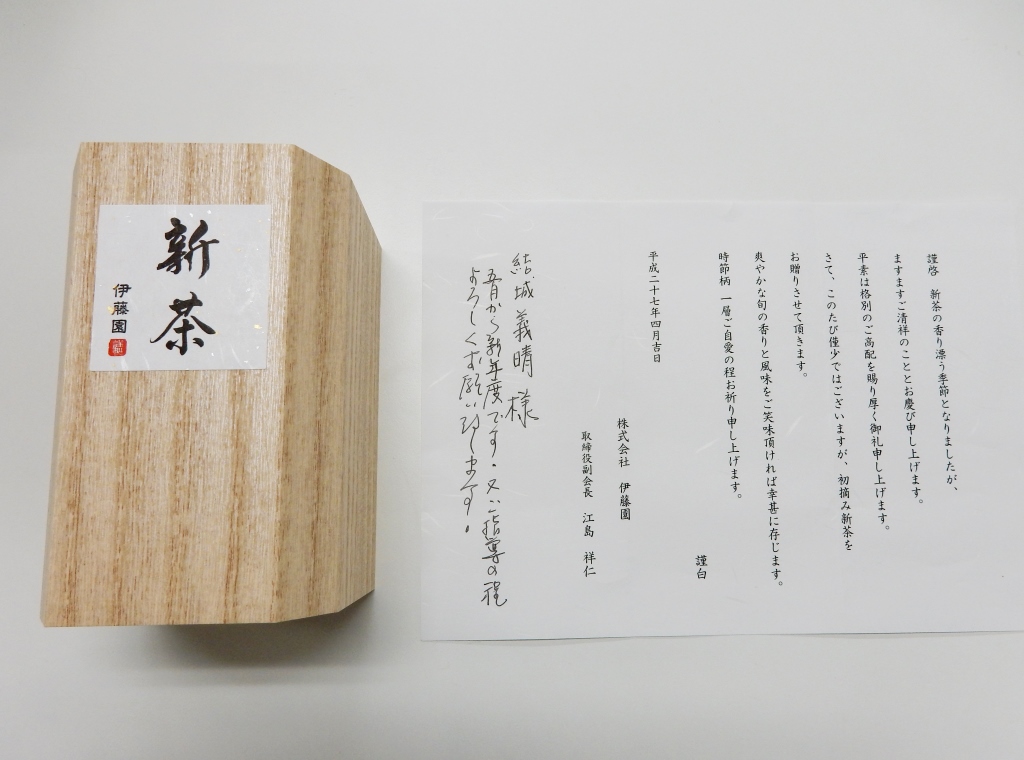 新茶
伊藤園
謹啓　新茶の香り漂う季節となりましたが、
ますますご清祥のこととお慶び申し上げます。
平素は格別のご高配を賜り厚く御礼申し上げます。
さて、このたび僅少ではございますが、初摘み新茶を
お贈りさせて頂きます。
爽やかな旬の香りと風味をご笑味頂ければ幸甚に存じます。
時節柄　一層ご自愛の程お祈り申し上げます。
謹白
平成二十七年四月吉日
株式会社　伊藤園
取締役副会長　江島　祥仁
結城義晴様
五月から新年度です。又ご指導の程
よろしくお願い致します。